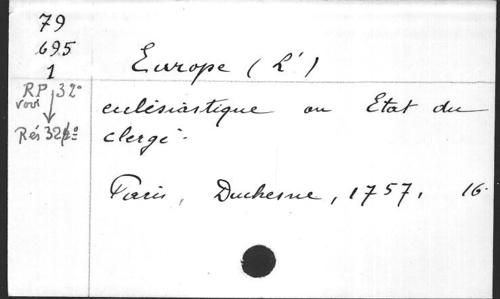 79
695
1
Europe (L')
RP 32°
voir
Rés 32
ecclésiastique ou Etat du
clergé.
Paris, Duchesne, 1757. 16.